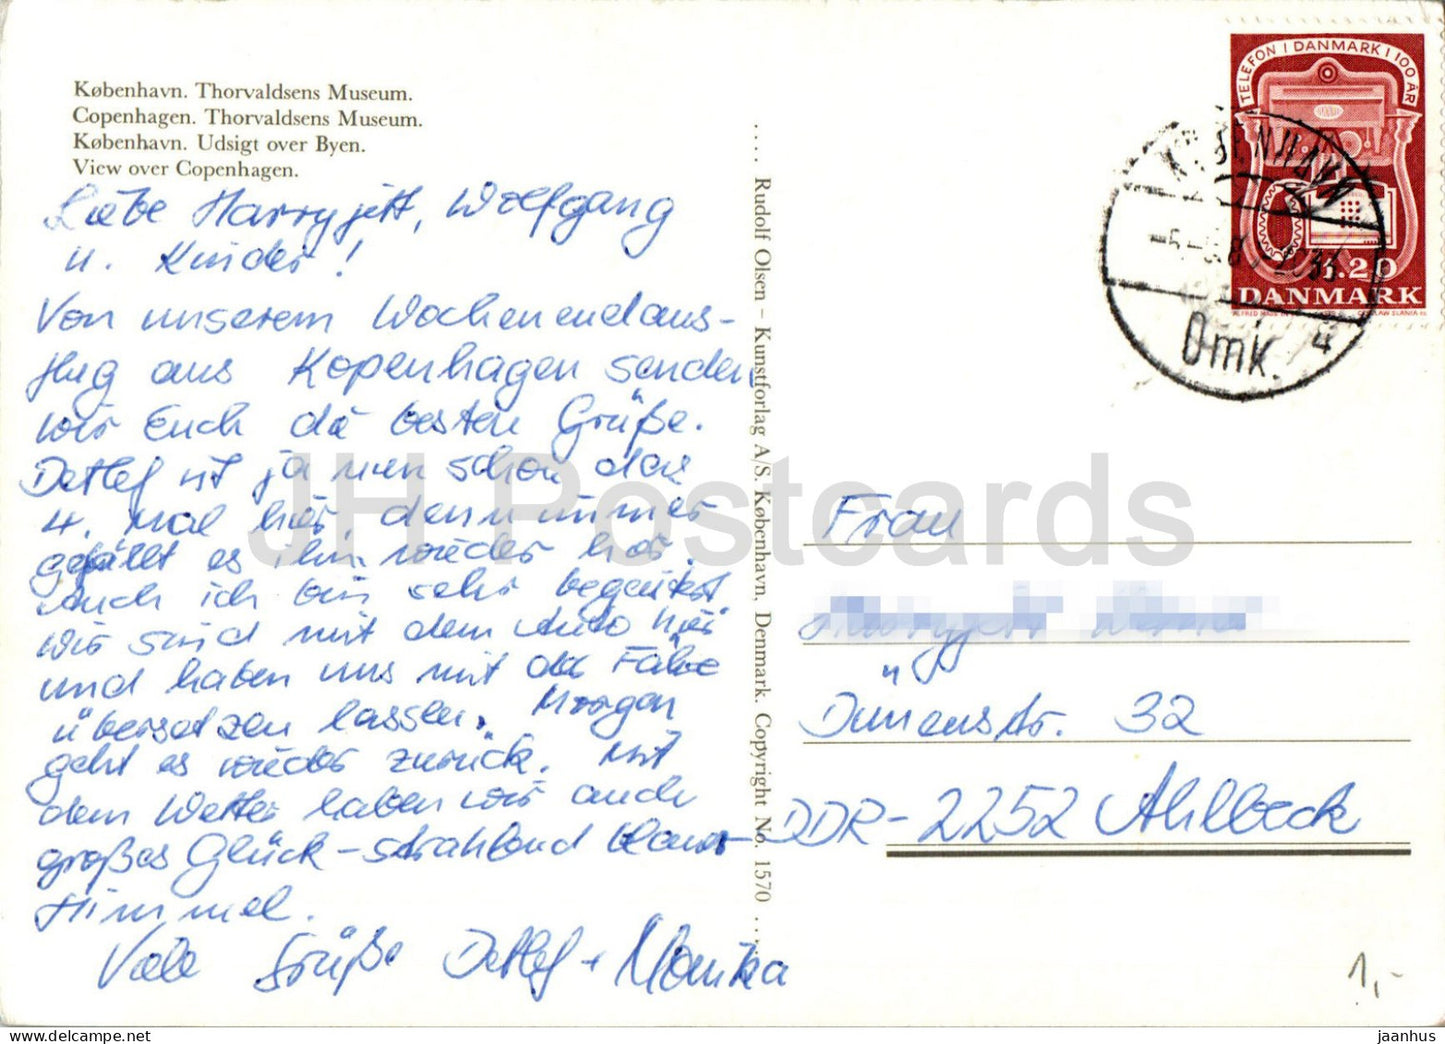 København. Thorvaldsens Museum.
Copenhagen. Thorvaldsens Museum.
København. Udsigt over Byen.
View over Copenhagen.
Liebe Harryjett, Wolfgang
u. Kinder!
Von unserem Wochenendaus-
flug aus Kopenhagen senden
wir Euch die besten Grüße.
Detlef ist ja nun schon das
4. Mal hier, denn immer
gefällt es ihm wieder hier.
Auch ich bin sehr begeistert
Wir sind mit dem Auto hier
und haben uns mit der Fähre
übersetzen lassen. Morgen
geht es wieder zurück. Mit
dem Wetter haben wir auch
großes Glück - strahlend blauer
Himmel.
Viele Grüße Detlef + Monika
.... Rudolf Olsen – Kunstforlag A/S. København, Denmark. Copyright No. 1570 ....
TELEFON I DANMARK I 100 ÅR
1.20
DANMARK
KØBENHAVN
Dmk.
4
Frau
Dünenstr. 32
DDR-2252 Ahlbeck
1,-
JH Postcards
hipstamp.com/store/jaanhus-store-ltd
jaanhus